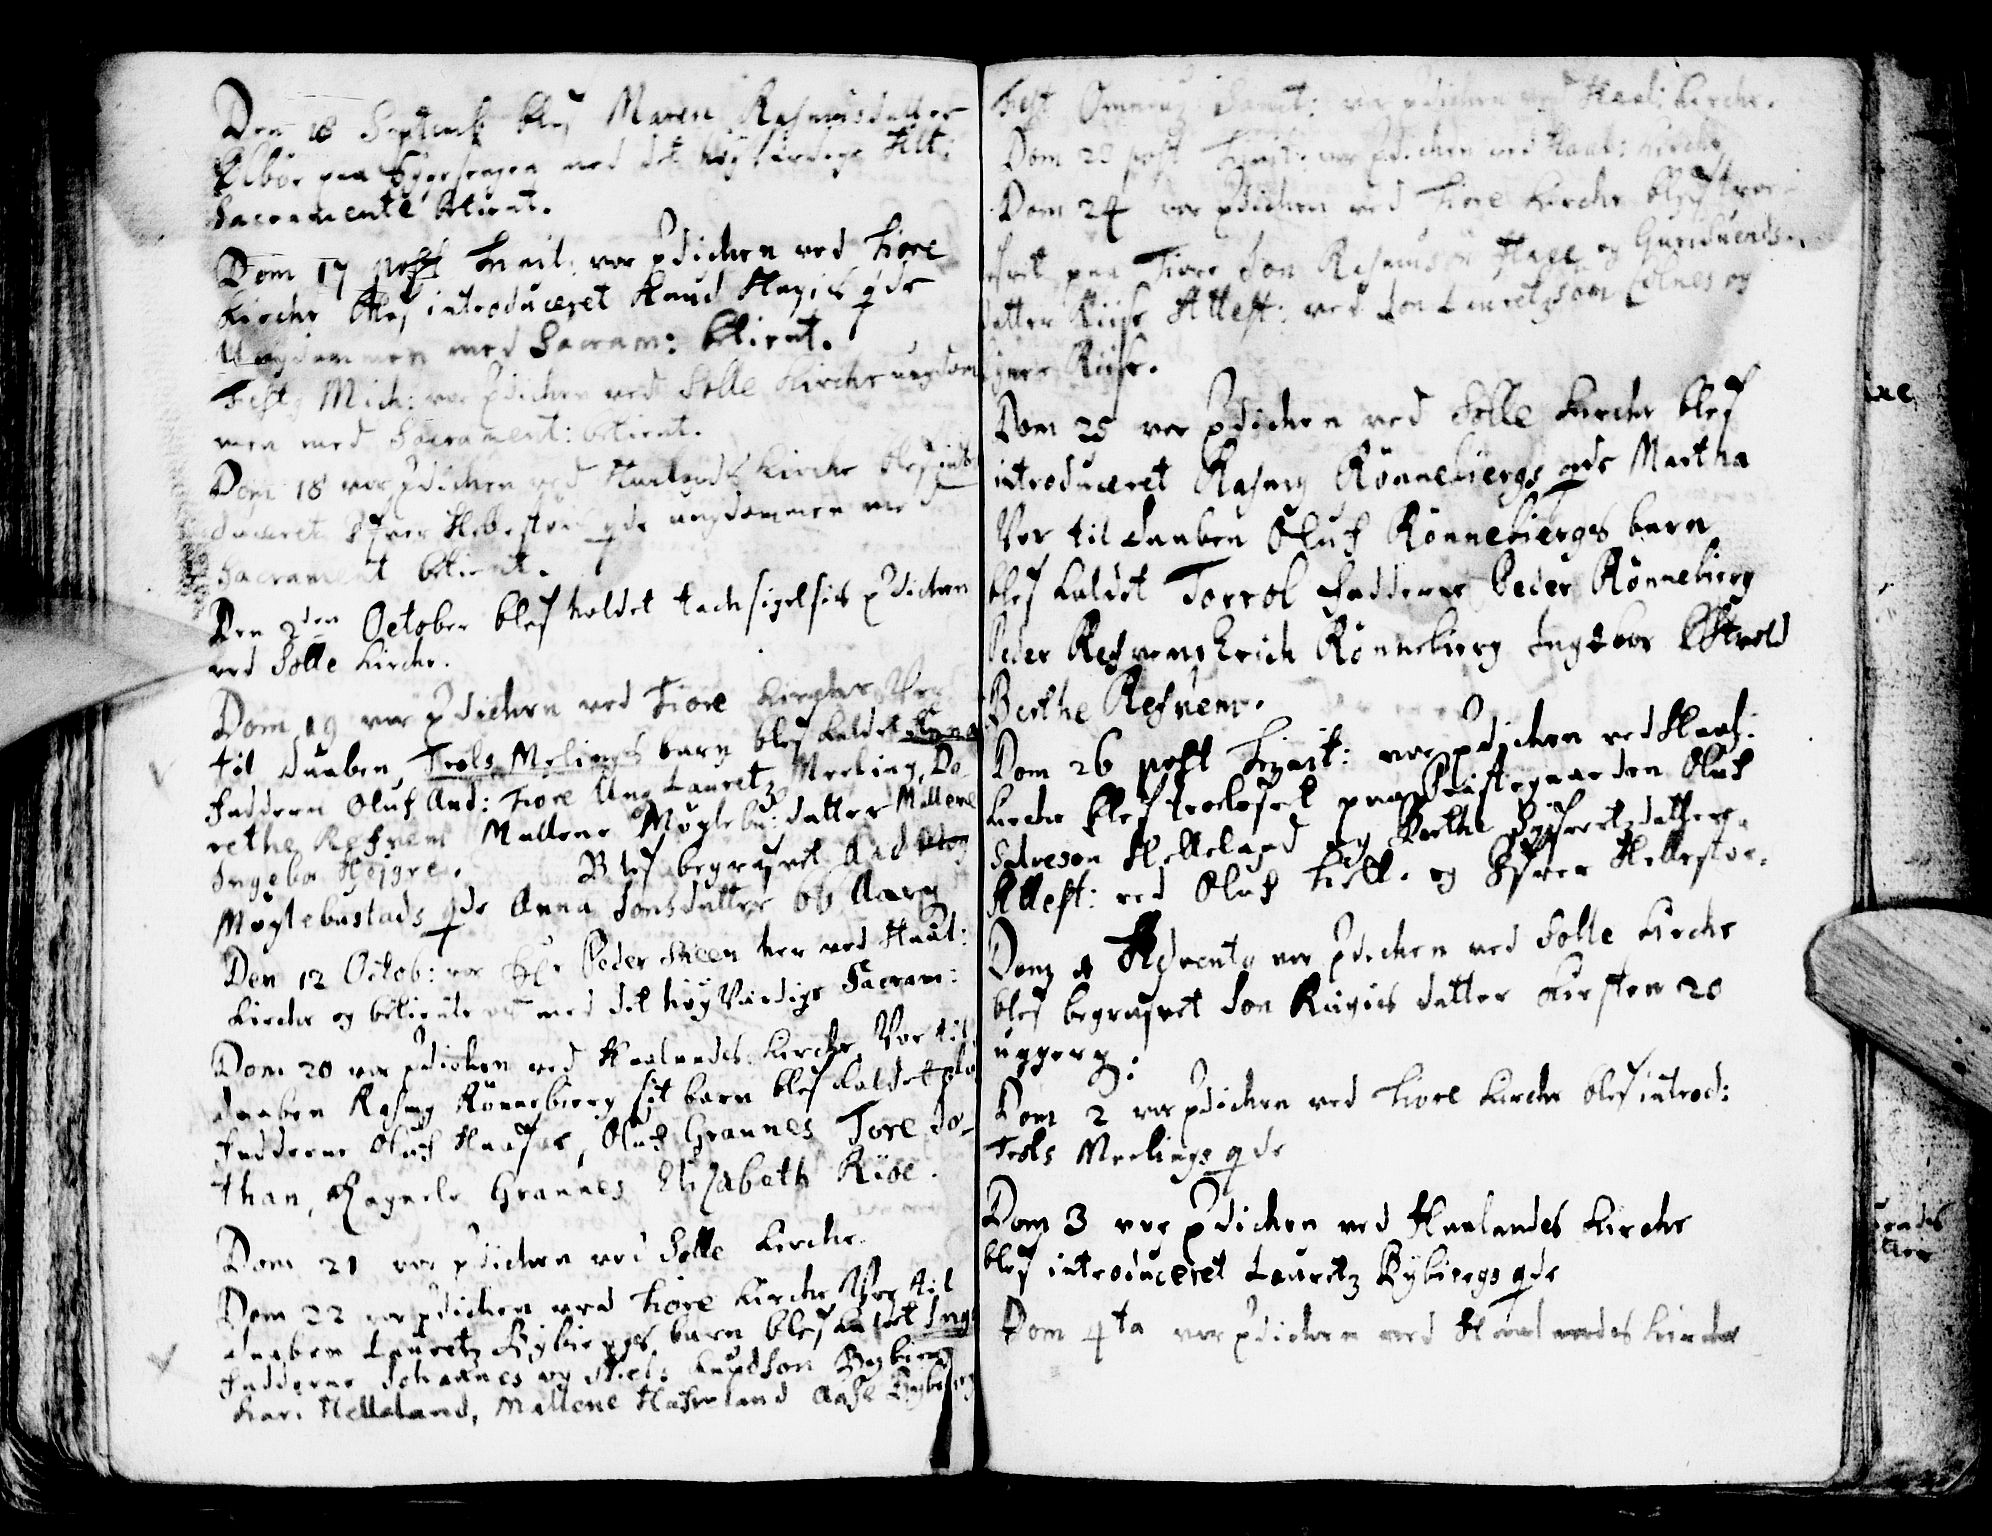 Den 18 Septemb blef Maren Rasmusdatter
Ølbør paa Sygesengen med det høyværdige Alt:
Sacramente betient.
Dom 17 post Trinit: var Pdichen ved Tiore
Kirche blef introduceret Knud Hagis qde
Ungdommen med Sacram: betient.
Festo Mich: var Pdichen ved Solle Kirche ungdom
men med Sacrament: betient.
Dom 18 var Pdichen ved Haalands Kirche blef int
duceret Sifver Hellestøe qde ungdommen med
Sacrament betient.
Den 2den October blef holdet tachsigelsis Pdichen
ved Solle Kirche.
Dom 19 var Pdichen ved Tiore Kirche Var
til Daaben Trols Melings barn blef kaldet Anna
Faddern Oluf And: Tiore Ung Lauretz Meeling, Do-
rethe Refvem Mallene Møglebu: datter Mallene
Ingebor Hejgre. Blef begrafvet Aad
Møglebustads qde Anna Jonsdatter 66 Aar
Den 12 Octob: var Hr Peder Skeen her ved Haal:
Kirche og betiente os med det høyværdige Sacram:
Dom 20 var Pdichen ved Haalandes Kirche Var til
daaben Rasmus Rønnebierg sit barn blef kaldet
Fadderne Oluf Haaser, Oluf Grannes Tore Jo-
than, Ragnele Grannes Elizabeth Riise.
Dom 21 var Pdichen ved Solle Kirche.
Dom 22 var Pdichen ved Tiore Kirche Var til
daaben Lauretz Rybiergs barn blef kaldet Ing
Fadderne Johannes og Niels Knudson Rybierg
Kari Helleland, Mallene Hafveland Aase Rybierg
Fest Omnium Sanct: var Pdichen ved Haal: Kirche.
Dom 23 post Trinit: var Pdichen ved Haal: Kirche
Dom 24 var Pdichen ved Tiore Kirche blef trol-
ofvit paa Tiore Jon Rasmuson Hage og Gurj Suends-
datter Riise Attest: ved Jon Lauretzson Lølnes og
Riise.
Dom 25 var Pdichen ved Solle Kirche blef
introduceret Rasmus Rønnebiergs qde Martha
Var til daaben Oluf Rønnebiergs barn
blef kaldet Torrol Fadderne Peder Rønnebierg
Peder Refvem, Erich Rønnebierg Ingebor
Berthe Refvem.
Dom 26 post Trinit: var Pdichen ved Haal:
Kirche blef trolofvet paa Præstegaarden Oluf
Salveson Helleland og Berthe Sifvertsdatter.
Attest: ved Oluf og Sifver Hellestøe.
Dom 1 Advents var Pdichen ved Solle Kirche
blef begrafvet Jon Riigis datter Kirsten 20
uggers.
Dom 2 var Pdichen ved Tiore Kirche blef introd:
Trols Meelings qde
Dom 3 var Pdichen ved Haalandes Kirche
blef introduceret Lauretz Rybiergs qde
Dom 4ta var Pdichen ved Haalandes Kirche